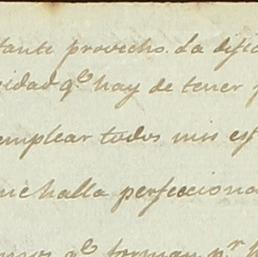 tante provecho. La difi
sidad q.e hay de tener
emplear todos mis esf
ue halla perfecciona
mos q.e forman p.r